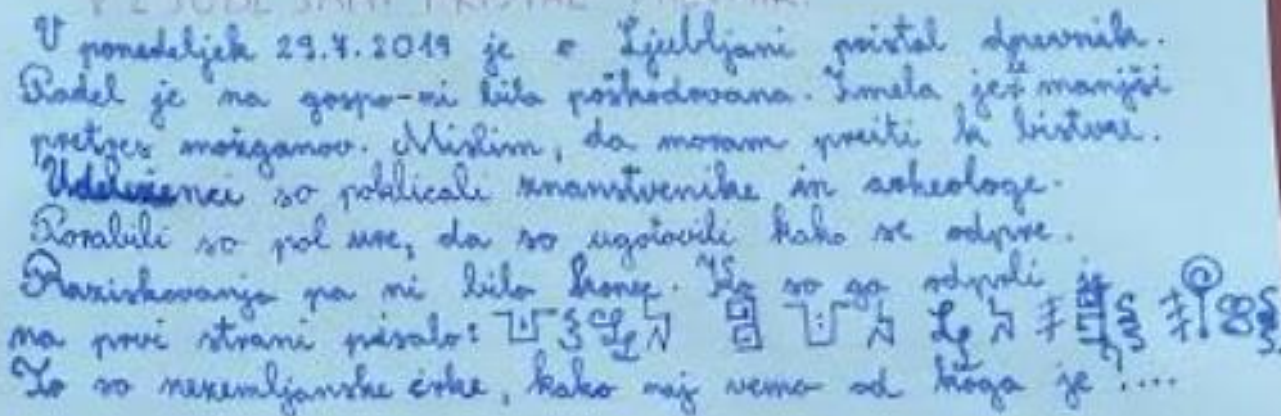 V ponedeljek 29.7.2019 je v Ljubljani pristal dnevnik.
Padel je na gospo-ni bila poškodovana. Imela je manjši
pretres možganov. Mislim, da moram preiti k bistvu.
Udeleženci so poklicali znanstvenike in arheologe.
Porabili so pol ure, da so ugotovili kako se odpre.
Raziskovanja pa ni bilo konec. Ko so ga odprli je
na prvi strani pisalo:
To so nezemljanske črke, kako naj vemo od koga je ....